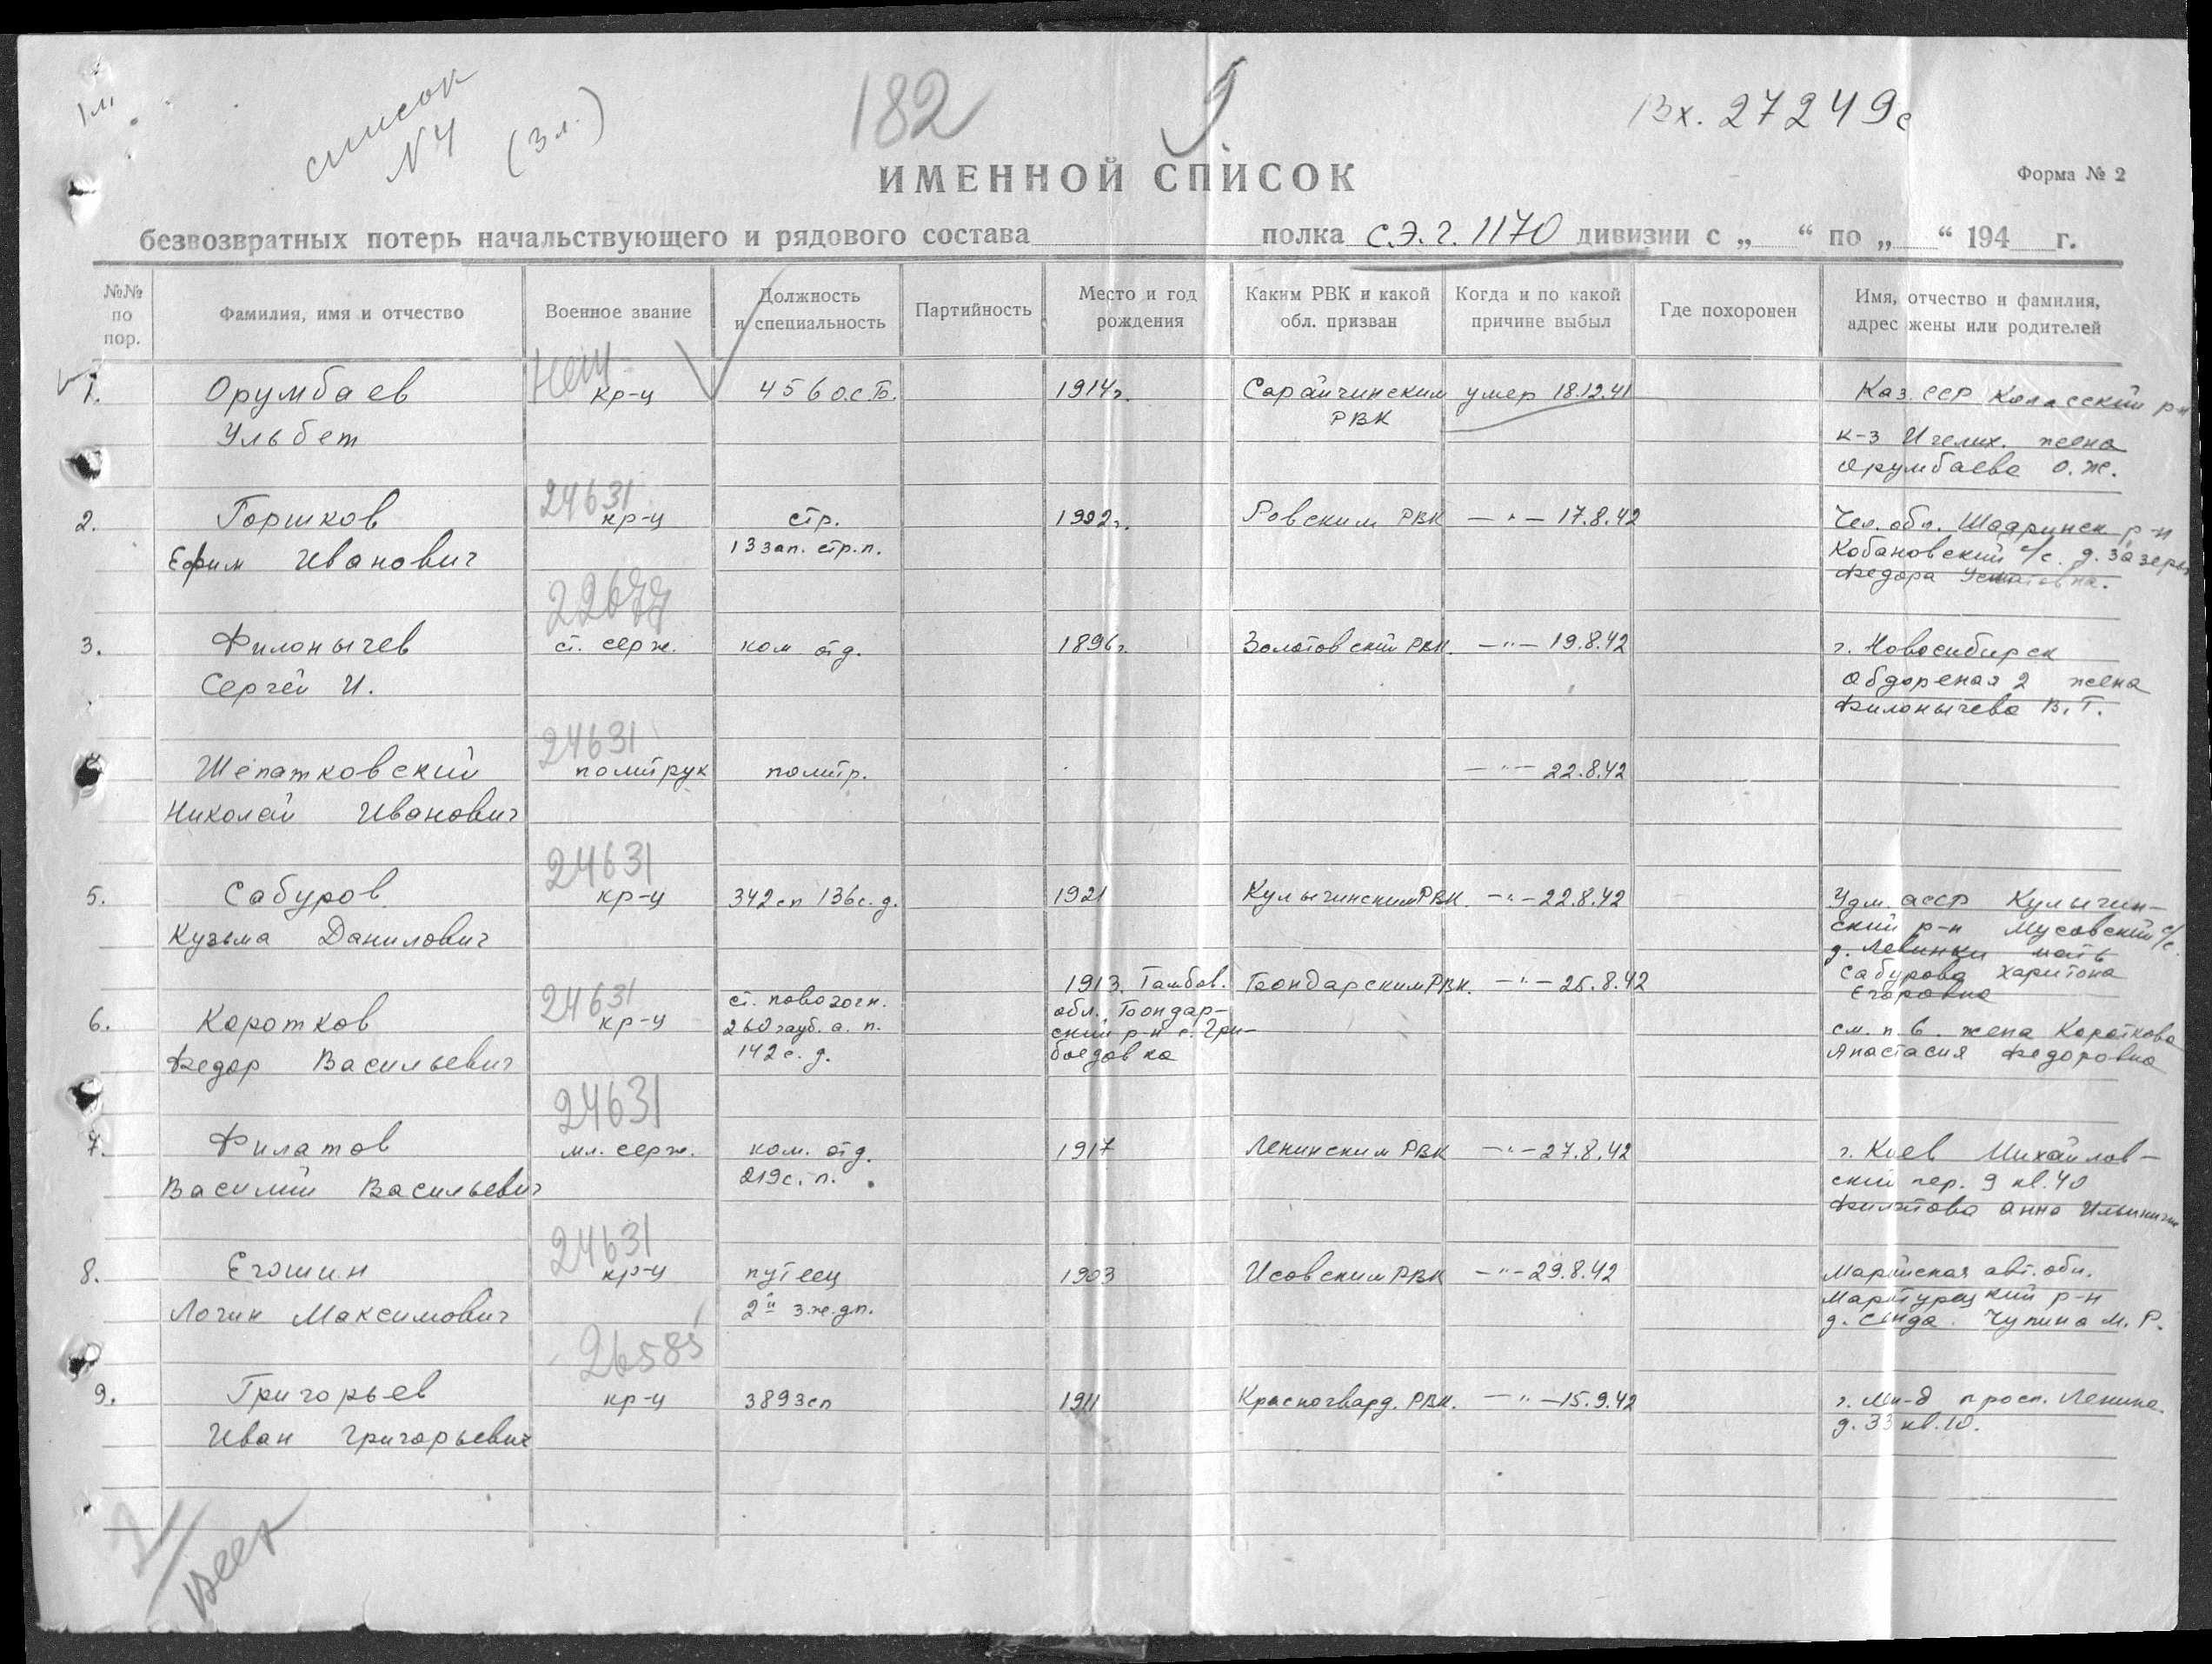 1л.
список
№4 (3 л.)
182
9
Вх. 27249с
ИМЕННОЙ СПИСОК
Форма № 2
безвозвратных потерь начальствующего и рядового состава полка с.э.г. 1170 дивизии с „ “ по „ “ 194 г.
№№ по пор.
Фамилия, имя и отчество
Военное звание
Должность и специальность
Партийность
Место и год рождения
Каким РВК и какой обл. призван
Когда и по какой причине выбыл
Где похоронен
Имя, отчество и фамилия, адрес жены или родителей
1. Орумбаев кр-ц 456 о.с.б. 1914г. Сарайчинским умер 18.12.41 Каз. ССР р-н
Ульбет РВК к-з жена
Орумбаева О.Ж.
24631
2. Горшков кр-ц стр. 1902г. Ровским РВК —"— 17.8.42 Чел. обл. Шадринск р-н
Ефим Иванович 13 зап. стр. п. Кобановский с/с. д.
Федора
22677
3. Филонычев ст. серж. ком. отд. 1896г. Золотовский РВК —"— 19.8.42 г. Новосибирск
Сергей И. 2 жена
Филонычева В.Т.
24631
Шепатковский политрук политр. —"— 22.8.42
Николай Иванович
24631
5. Сабуров кр-ц 342 сп 136 с.д. 1921 Кулычинским РВК. —"— 22.8.42 Удм. АССР Кулычин-
Кузьма Данилович ский р-н Мусовский с/с.
д. Левинки мать
Сабурова Харитона
Егоровна
24631
6. Коротков кр-ц ст. повозочн. 1913. Тамбов. Бондарским РВК. —"— 25.8.42
260 гауб. а. п. обл. Бондар- см. п. 6. жена Короткова
Федор Васильевич 142 с. д. ский р-н с. Гри- Анастасия Федоровна
боедовка
24631
7. Филатов мл. серж. ком. отд. 1917 Ленинским РВК —"— 27.8.42 г. Киев Михайлов-
Василий Васильевич 219 с. п. ский пер. 9 кв. 40
Филатова Анна Ильинична
24631
8. Егошин кр-ц путеец 1903 Исовским РВК —"— 29.8.42 Марийская авт. обл.
Логин Максимович 2й з.ж.д.п. Маритурецкий р-н
д. Чупина М. Р.
26585
9. Григорьев кр-ц 389 зсп 1911 Красногвард. РВК. —"— 15.9.42 г. Лен-д просп. Ленина
Иван Григорьевич д. 33 кв. 10.